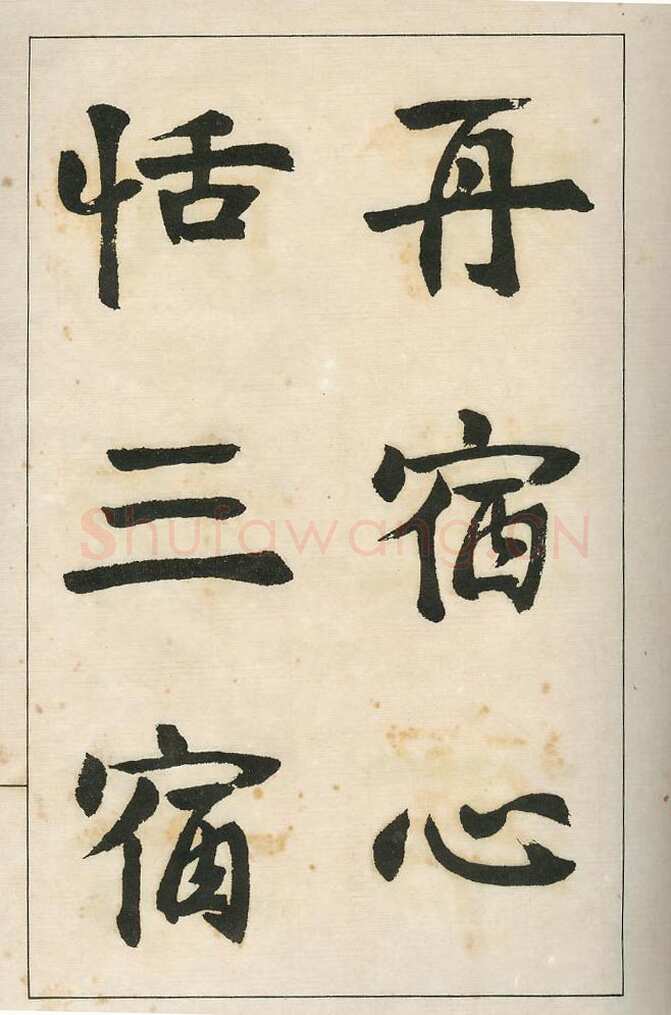 再宿心
恬三宿
Shufawang.CN